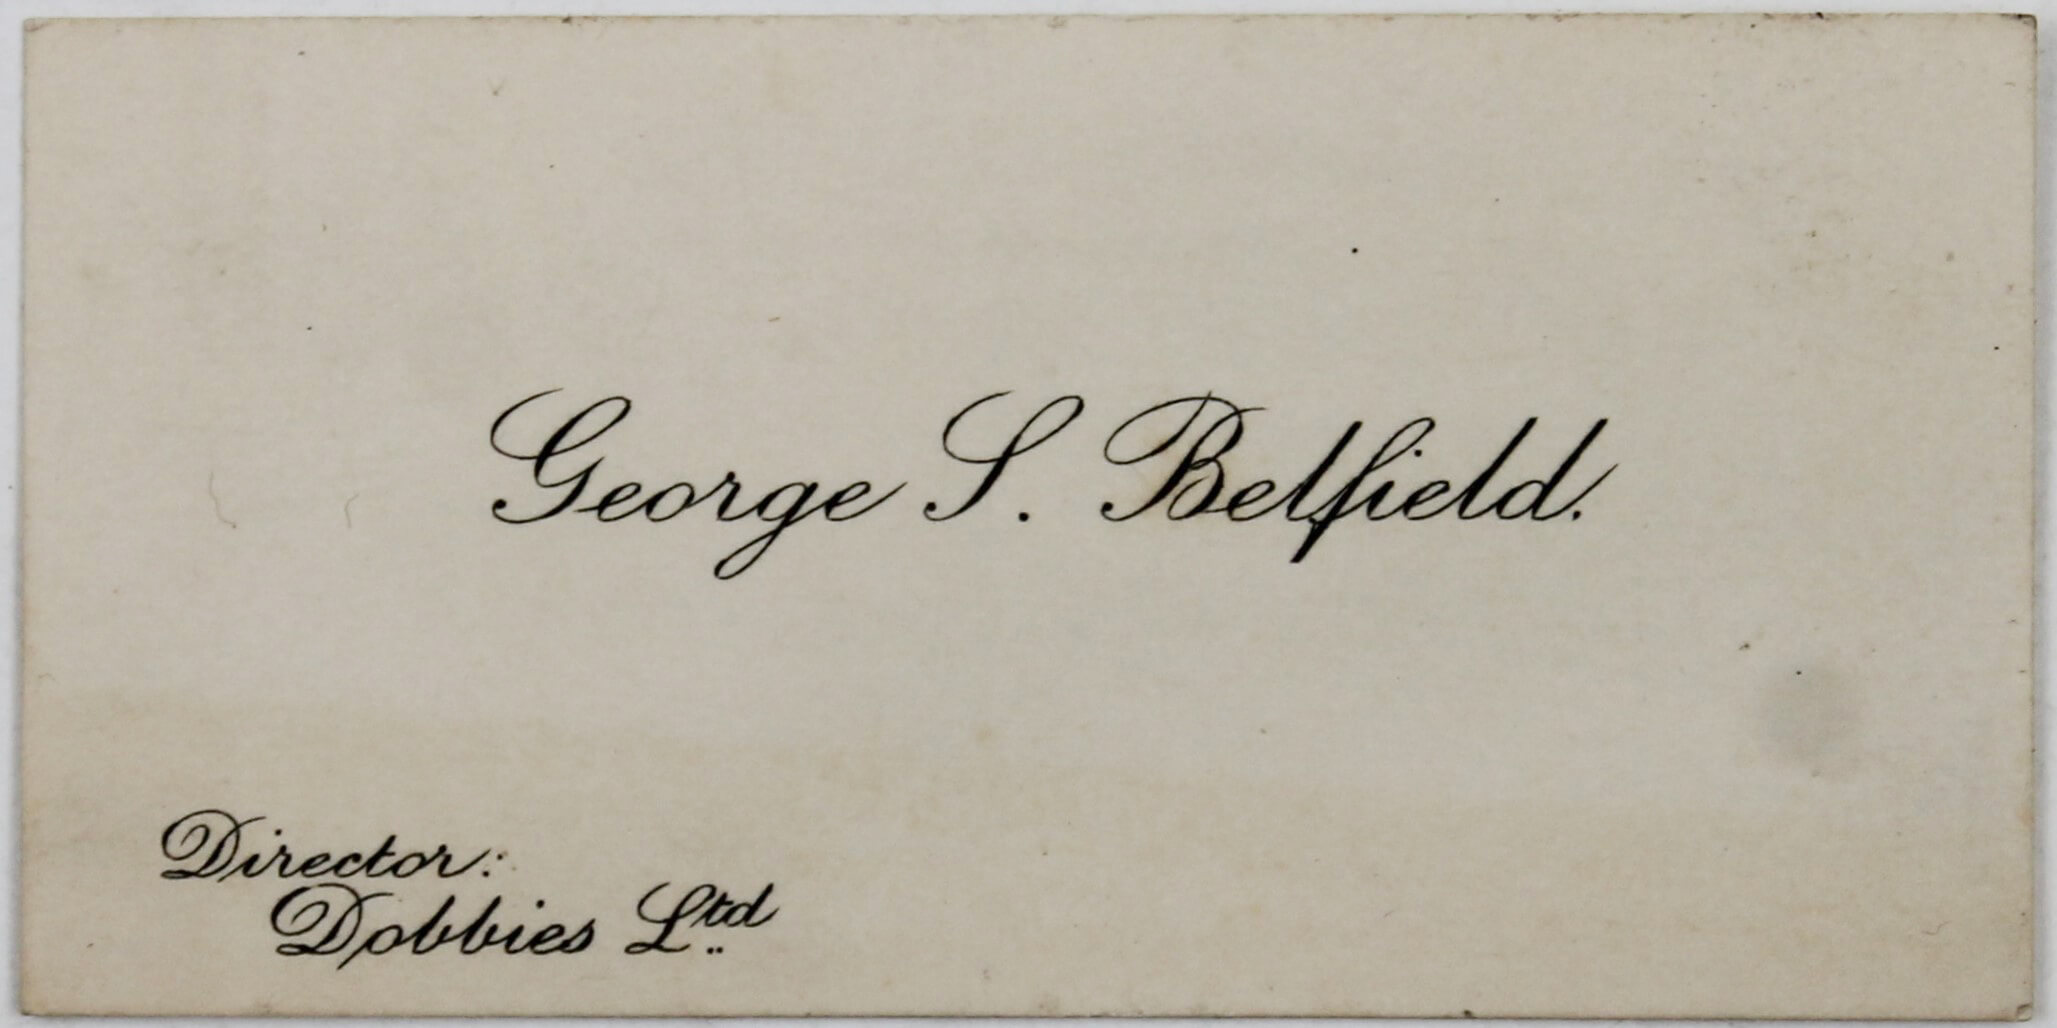 George S. Belfield.
Director:
Dobbies Ltd